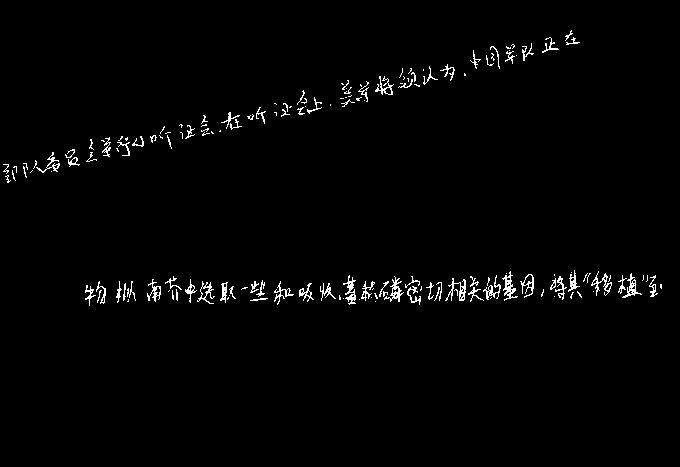 部队委员会举行小听证会.在听证会上.美军将领认为.中国军队正在
物拟南芥中选取一些和吸收、蓄积磷密切相关的基因,将其“移植”到